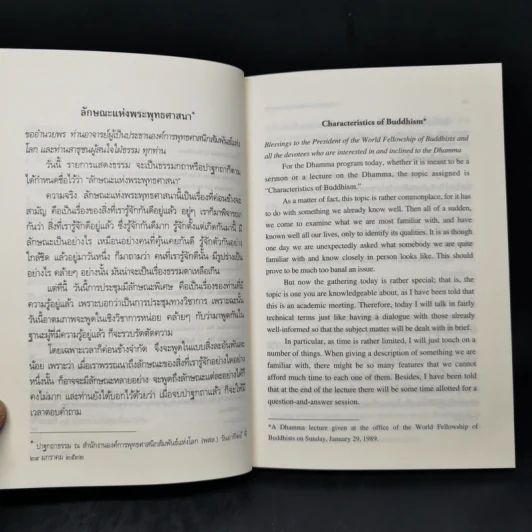 ลักษณะแห่งพระพุทธศาสนา*
ขออำนวยพร ท่านอาจารย์ผู้เป็นประธานองค์การพุทธศาสนิกสัมพันธ์แห่ง
โลก และท่านสาธุชนผู้สนใจใฝ่ธรรม ทุกท่าน
วันนี้ รายการแสดงธรรม จะเป็นธรรมกถาหรือปาฐกถาก็ตาม
ได้กำหนดชื่อไว้ว่า "ลักษณะแห่งพระพุทธศาสนา"
ความจริง ลักษณะแห่งพระพุทธศาสนานี้เป็นเรื่องที่ค่อนข้างจะ
สามัญ คือเป็นเรื่องของสิ่งที่เรารู้จักกันดีอยู่แล้ว อยู่ๆ เราก็มาพิจารณา
กันว่า สิ่งที่เรารู้จักกันดีอยู่แล้ว ซึ่งรู้จักกันดีมาก รู้จักตั้งแต่เกิดกันมานี้ มี
ลักษณะเป็นอย่างไร เหมือนอย่างคนที่คุ้นเคยกันดี รู้จักตัวกันอย่าง
ใกล้ชิด แล้วอยู่มาวันหนึ่ง ก็มาถามว่า คนที่เรารู้จักดีคนนั้น มีรูปร่างเป็น
อย่างไร คล้ายๆ อย่างนั้น มันน่าจะเป็นเรื่องธรรมดาเหลือเกิน
แต่ทีนี้ วันนี้การประชุมมีลักษณะพิเศษ คือเป็นเรื่องของท่านที่มี
ความรู้อยู่แล้ว เพราะบอกว่าเป็นการประชุมทางวิชาการ เพราะฉะนั้น
วันนี้อาตมภาพจะพูดในเชิงวิชาการหน่อย คล้ายๆ กับว่ามาพูดกันใน
ฐานะผู้ที่มีความรู้อยู่แล้ว ก็จะรวบรัดตัดความ
โดยเฉพาะเวลาก็ค่อนข้างจำกัด จึงจะพูดในแบบสิ่งละอันพันละ
น้อย เพราะว่า เมื่อเราพรรณนาถึงลักษณะของสิ่งที่เรารู้จักอย่างใดอย่าง
หนึ่งนั้น ก็อาจจะมีลักษณะหลายอย่าง จะพูดถึงลักษณะแต่ละอย่างได้ก็
คงไม่มาก และท่านยังได้บอกไว้ด้วยว่า เมื่อจบปาฐกถาแล้ว ก็จะให้มี
เวลาตอบคำถาม
* ปาฐกถาธรรม ณ สำนักงานองค์การพุทธศาสนิกสัมพันธ์แห่งโลก (พสล.) วันอาทิตย์ที่
๒๙ มกราคม ๒๕๓๒
Characteristics of Buddhism*
Blessings to the President of the World Fellowship of Buddhists and
all the devotees who are interested in and inclined to the Dhamma
For the Dhamma program today, whether it is meant to be a
sermon or a lecture on the Dhamma, the topic assigned is
"Characteristics of Buddhism."
As a matter of fact, this topic is rather commonplace, for it has
to do with something we already know well. Then all of a sudden,
we come to examine what we are most familiar with, and have
known well all our lives, only to identify its qualities. It is as though
one day we are unexpectedly asked what somebody we are quite
familiar with and know closely in person looks like. This should
prove to be much too banal an issue.
But now the gathering today is rather special; that is, the
topic is one you are knowledgeable about, as I have been told that
this is an academic meeting. Therefore, today I will talk in fairly
technical terms just like having a dialogue with those already
well-informed so that the subject matter will be dealt with in brief.
In particular, as time is rather limited, I will just touch on a
number of things. When giving a description of something we are
familiar with, there might be so many features that we cannot
afford much time to each one of them. Besides, I have been told
that at the end of the lecture there will be some time allotted for a
question-and-answer session.
*A Dhamma lecture given at the office of the World Fellowship of
Buddhists on Sunday, January 29, 1989.